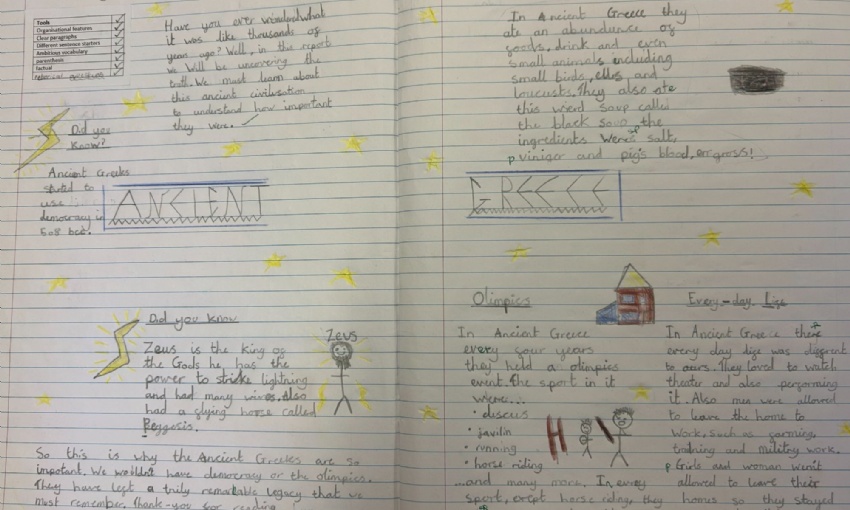 Tools
Organisational features
Clear paragraphs
Different sentence starters
Ambitious vocabulary
parenthesis
factual
Have you ever wonderd what
it was like thousands of
years ago? Well, in the report
we will be uncovering the
truth. We must learn about
this ancient civilisation
to understand how important
they were.
Did you
Know?
Ancient Greeks
started to
use
democracy in
508 bce.
ANCIENT
In Ancient Greece they
ate an abundance of
foods, drink and even
small animals including
small birds, elles, and
loucusts. They also ate
this wierd soup called
the black soup the
ingredients were salt,
p viniger and pig's blood, err gross!
GREECE
Did you know
Zeus is the king of
the Gods he has the
power to strike lightning
and had many wives. Also
had a flying horse called
Peggasis.
Zeus
So this is why the Ancient Greeks are so
impotant. We wouldn't have democracy or the olimpics.
They have left a truly remarkable legacy that we
must remember. Thank-you for reading
Olimpics
In Ancient Greece
every four years
they held a olimpics
event. The sport in it
were...
• discus
• javilin
• running
• horse riding
...and many more. In every
sport, exept horse riding, they
Every-day Life
In Ancient Greece there
every day life was different
to ours. They loved to watch
theater and also performing
it. Also men were allowed
to leave the home to
work, such as farming,
trading and military work.
p Girls and woman weren't
allowed to leave their
homes so they stayed